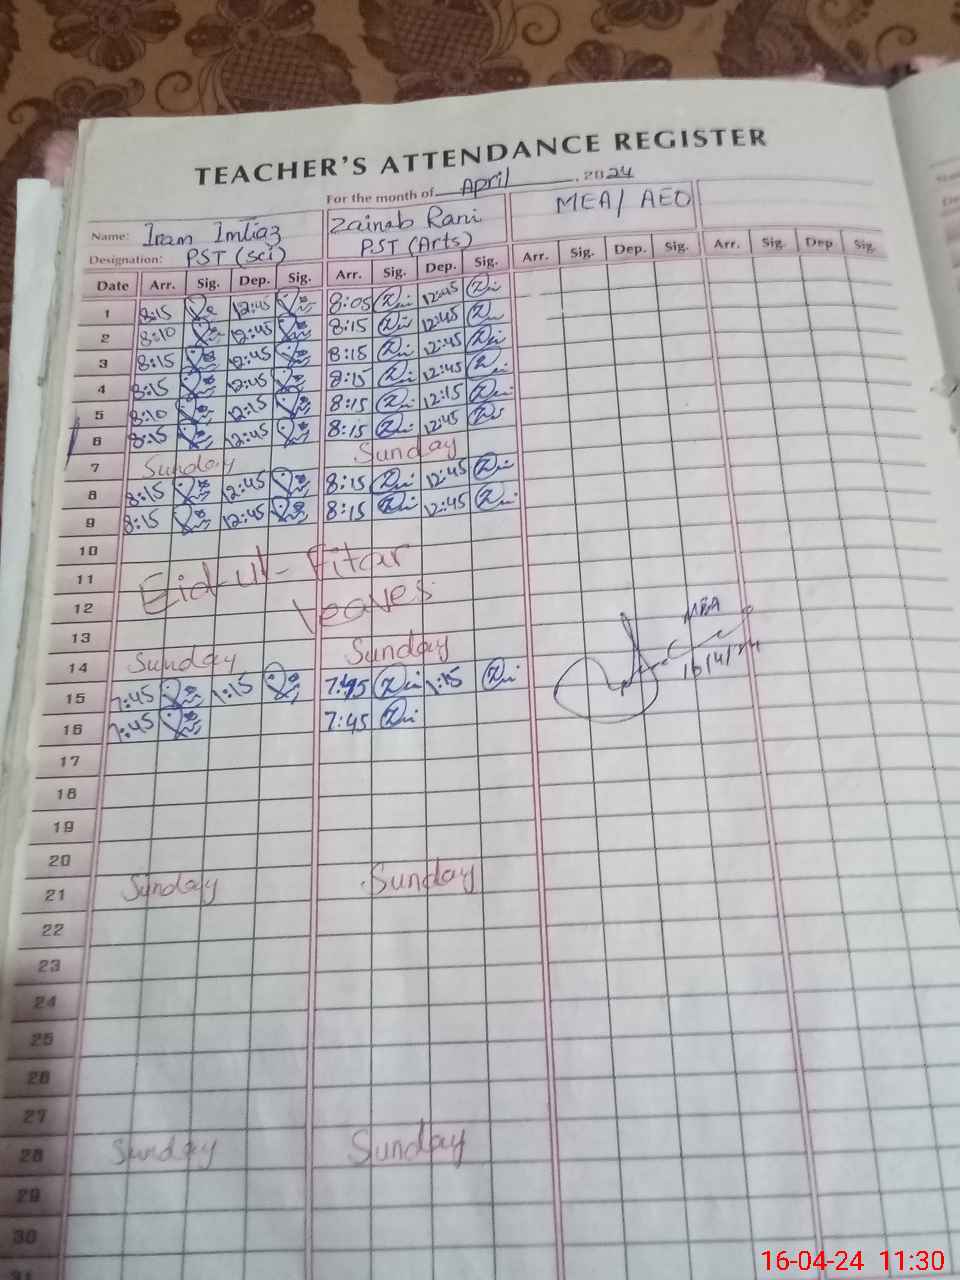 TEACHER'S ATTENDANCE REGISTER
For the month of April, 2024
Name: Iram Imtiaz Zainab Rani MEA/ AEO
Designation: PST (sci) PST (Arts)
Date Arr. Sig. Dep. Sig. Arr. Sig. Dep. Sig. Arr. Sig. Dep. Sig. Arr. Sig. Dep Sig.
1 8:15 12:45 8:05 12:45
2 8:10 12:45 8:15 12:45
3 8:15 12:45 8:15 12:45
4 8:15 12:45 8:15 12:45
5 8:10 12:15 8:15 12:15
6 8:15 12:45 8:15 12:45
7 Sunday Sunday
8 8:15 12:45 8:15 12:45
9 8:15 12:45 8:15 12:45
10
11 Eid-ul-Fitar
12 leaves MEA
13
14 Sunday Sunday 16/4/24
15 7:45 1:15 7:45 1:15
16 7:45 7:45
17
18
19
20
21 Sunday Sunday
22
23
24
25
26
27
28 Sunday Sunday
29
30
31
16-04-24 11:30